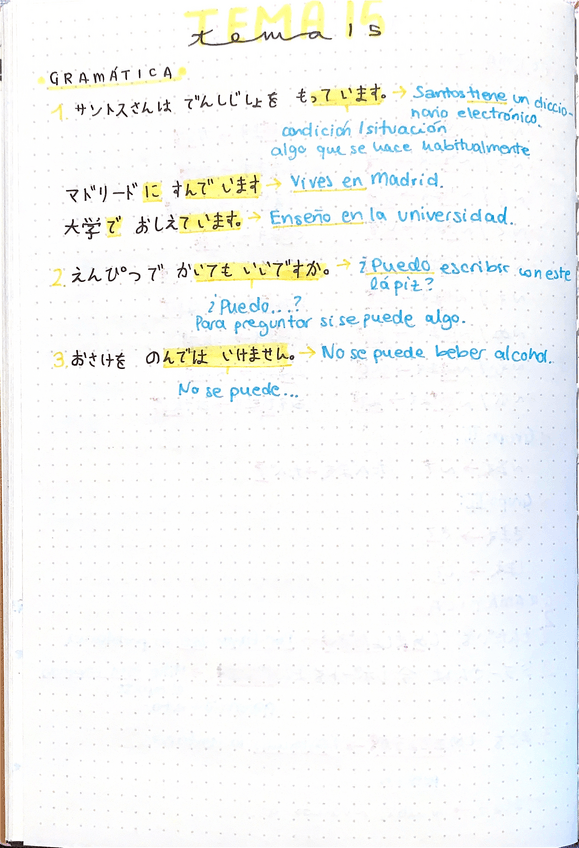 TEMA 15
tema 15
GRAMÁTICA
1. サントスさんは でんしじしょを もっています。→ Santos tiene un diccio-
nario electrónico.
condición / situación
algo que se hace habitualmente
マドリードに すんでいます → Vives en Madrid.
大学で おしえています。→ Enseño en la universidad.
2. えんぴつで かいてもいいですか。→ ¿Puedo escribir con este
lápiz?
¿Puedo...?
Para preguntar si se puede algo.
3. おさけを のんでは いけません。→ No se puede beber alcohol.
No se puede...